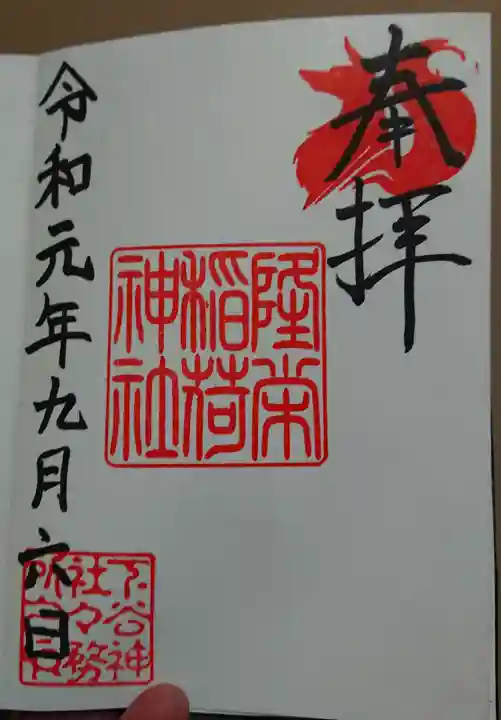 奉拝
隆栄
稲荷
神社
令和元年九月六日
下谷神
社々務
所之印